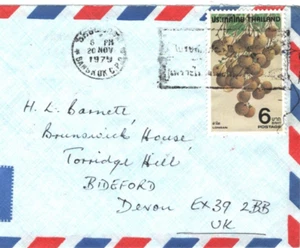 6 PM
20 NOV
1979
BANGKOK G.P.O.
ประเทศไทย THAILAND
6
บาท
BAHT
POSTAGE
ลำไย
LONGAN
H. L. Barnett
Brunswick House
Torridge Hill
BIDEFORD
Devon EX39 2BB
UK